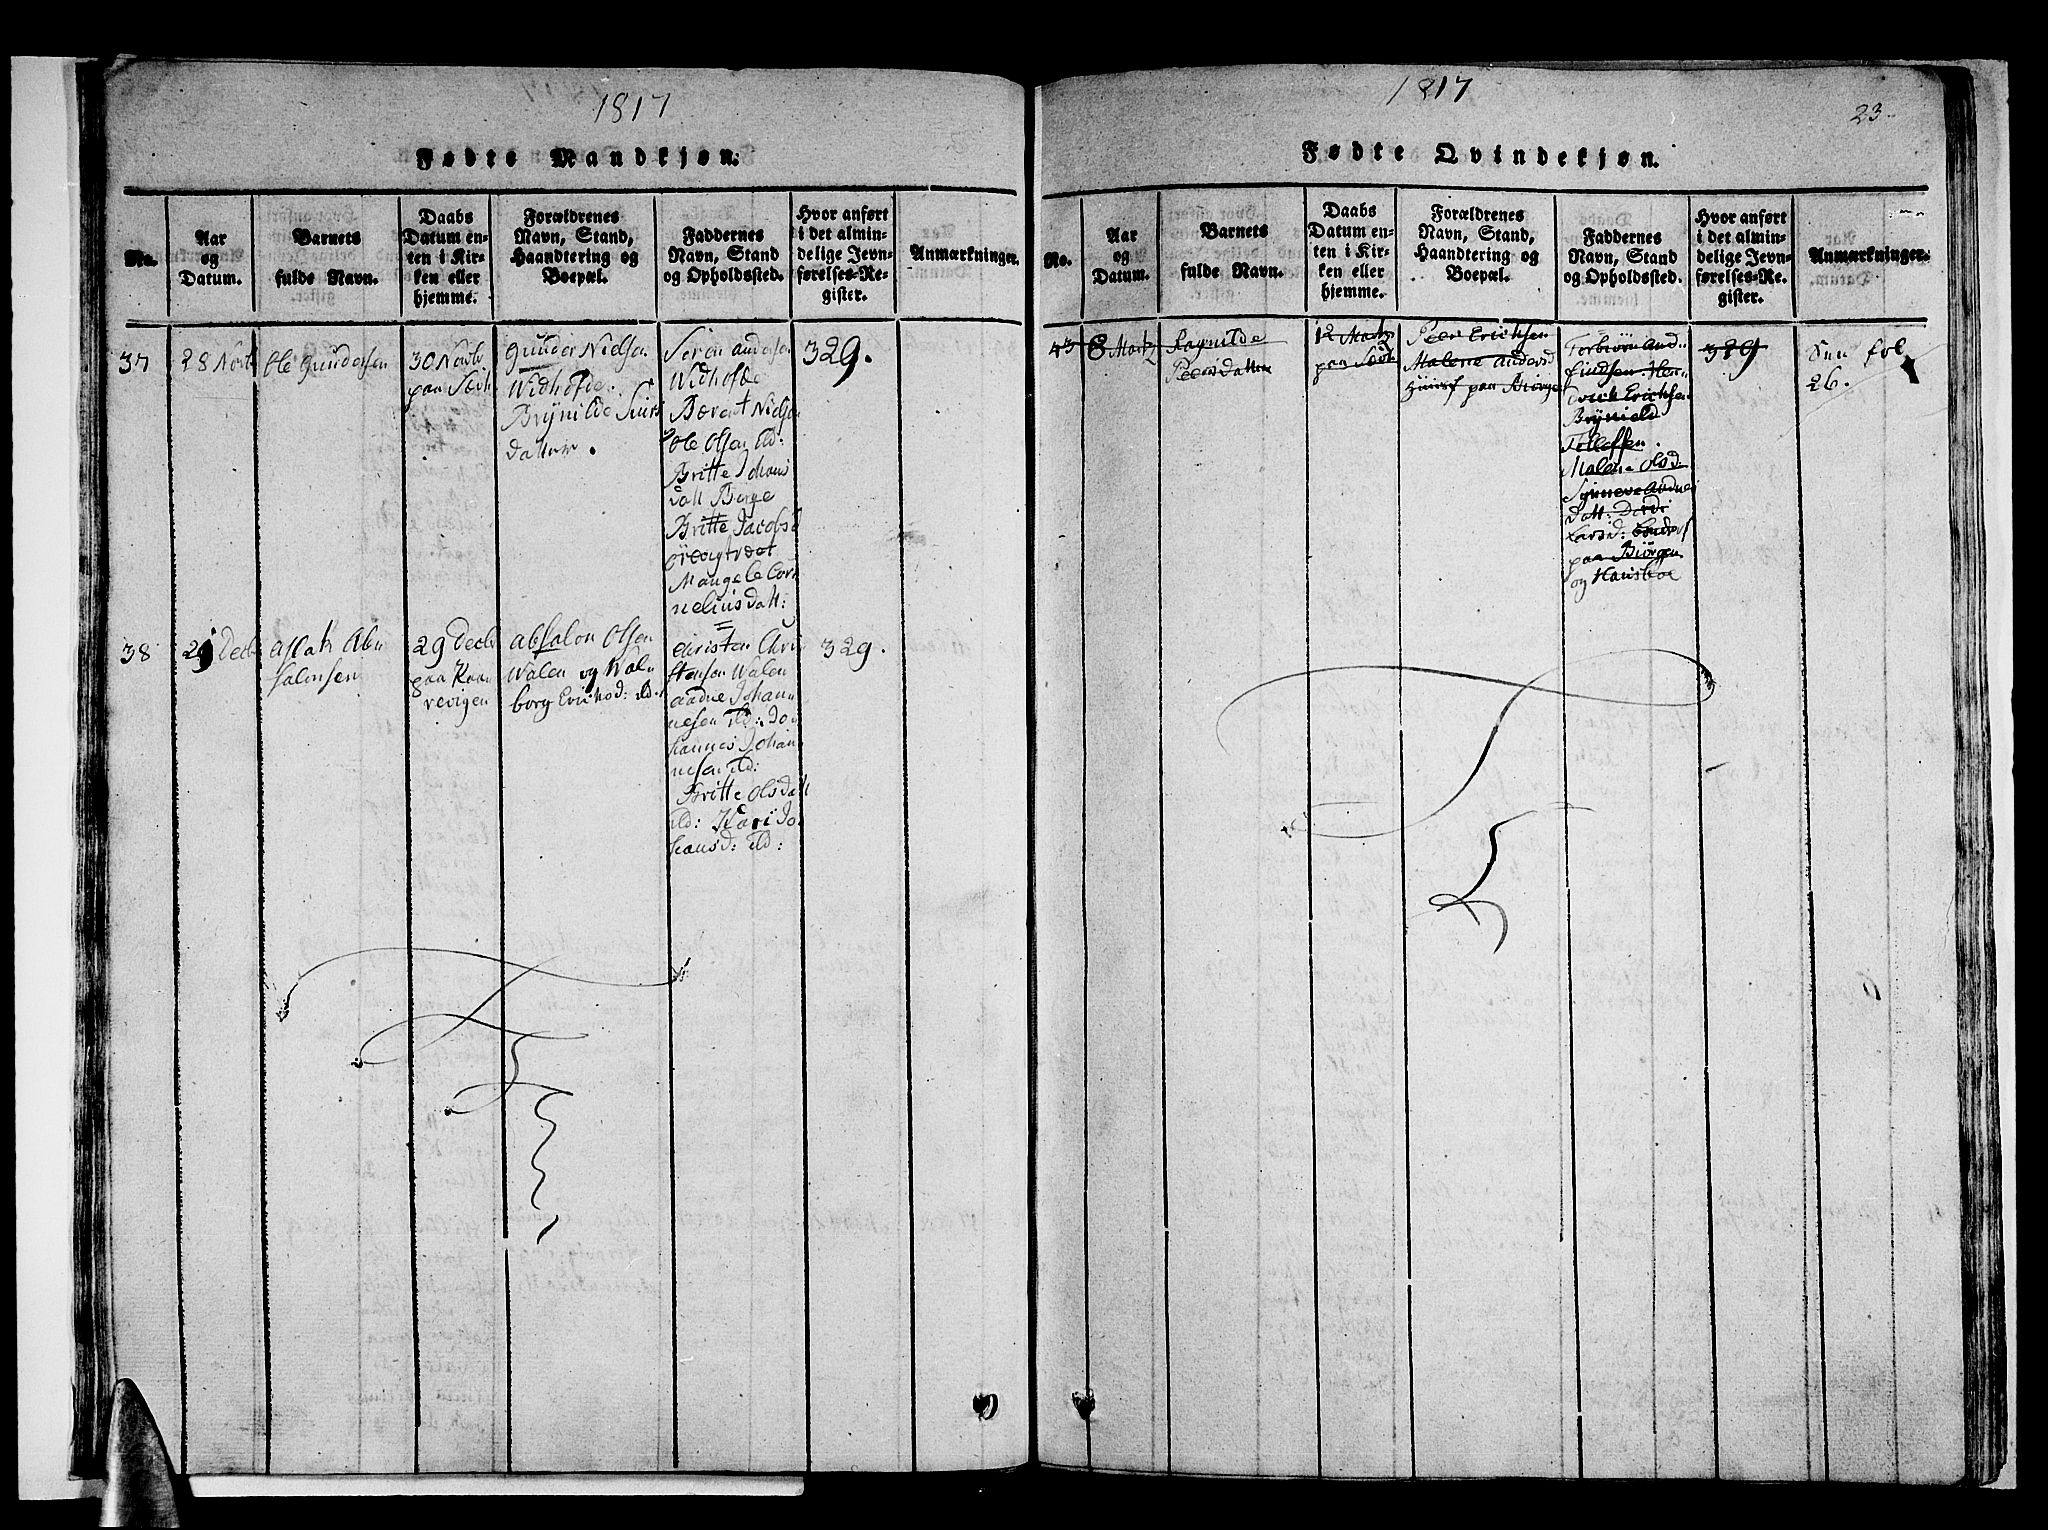 1817
Fødte Mandkjøn.
No.
Aar
og
Datum.
Barnets
fulde Navn.
Daabs
Datum en-
ten i Kir-
ken eller
hjemme.
Forældrenes
Navn, Stand,
Haandtering og
Boepæl.
Faddernes
Navn, Stand
og Opholdssted.
Hvor anført
i det almin-
delige Jevn-
førelses-Re-
gister.
Anmærkninger.
37
28
Ole Gundersen
30
paa
Gunder Nielsen
Widhofde
Brynilde
datter.
Søren Andersen
Widhofde
Berent Nielsen
Ole Olsen ild:
Britte Johans
datt Børge
Britte Jacobsd
Mangele Cor
neliusdatt:
329.
38
29 Decb
Aslak Abn
salonsen
29 Decb
paa Kaar
revigen
Absalon Olsen
Walen og Wal
borg Ericksd: ild.
Christen Chri
stensen Walen
Aadne Johan
nesen ild: Jo
hannes Johan
nesen ild:
Britte Olsdatt
ild: Kari Jo
hansd: ild:
329.
1817
23.
Fødte Qvindekjøn.
No.
Aar
og
Datum.
Barnets
fulde Navn.
Daabs
Datum en-
ten i Kir-
ken eller
hjemme.
Forældrenes
Navn, Stand,
Haandtering og
Boepæl.
Faddernes
Navn, Stand
og Opholdssted.
Hvor anført
i det almin-
delige Jevn-
førelses-Re-
gister.
Anmærkninger.
43
8 Martz
Ragnilde
Peersdatter
12 Martz
paa
Peer Ericksen
Malene Andersd
paa
Torbiørn And
Erick Ericksen
Brynield
Tollefsen.
Malene Olsd:
Synneve Aadne
datt:
Larsd:
paa Biørgen
og
329
fol
26.